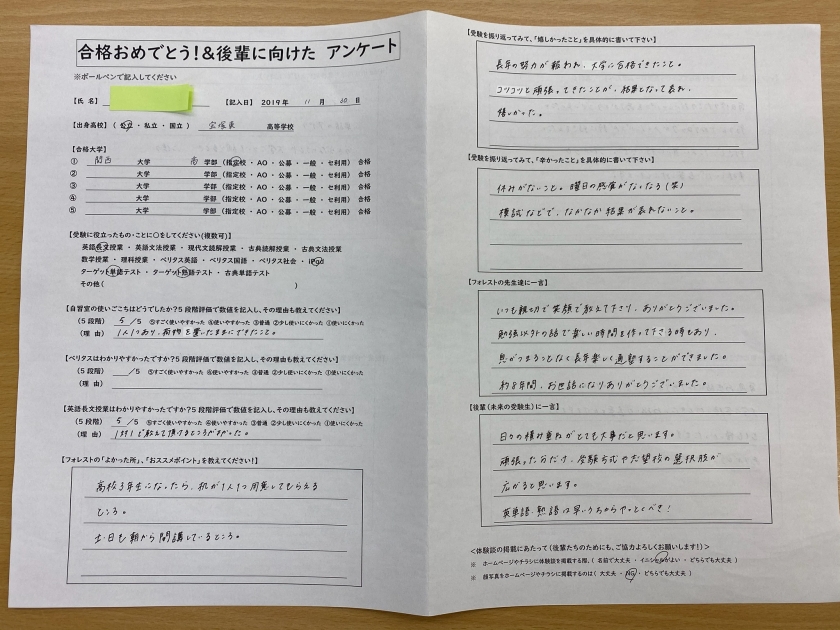 合格おめでとう!&後輩に向けた アンケート
※ボールペンで記入してください
【氏 名】 【記入日】 2019年 11 月 30 日
【出身高校】 ( 公立 ・ 私立 ・ 国立 ) 宝塚東 高等学校
【合格大学】
① 関西 大学 商 学部 (指定校 ・ AO ・ 公募 ・ 一般 ・ セ利用) 合格
② 大学 学部 (指定校 ・ AO ・ 公募 ・ 一般 ・ セ利用) 合格
③ 大学 学部 (指定校 ・ AO ・ 公募 ・ 一般 ・ セ利用) 合格
④ 大学 学部 (指定校 ・ AO ・ 公募 ・ 一般 ・ セ利用) 合格
⑤ 大学 学部 (指定校 ・ AO ・ 公募 ・ 一般 ・ セ利用) 合格
【受験に役立ったもの・ことに○をしてください(複数可)】
英語長文授業 ・ 英語文法授業 ・ 現代文読解授業 ・ 古典読解授業 ・ 古典文法授業
数学授業 ・ 理科授業 ・ ベリタス英語 ・ ベリタス国語 ・ ベリタス社会 ・ iPad
ターゲット単語テスト ・ ターゲット熟語テスト ・ 古典単語テスト
その他( )
【自習室の使いごこちはどうでしたか?5段階評価で数値を記入し、その理由も教えてください】
(5段階) 5 /5 ⑤すごく使いやすかった ④使いやすかった ③普通 ②少し使いにくかった ①使いにくかった
(理 由) 1人1つあり、荷物を置いたままにできたこと。
【ベリタスはわかりやすかったですか?5段階評価で数値を記入し、その理由も教えてください】
(5段階) /5 ⑤すごく使いやすかった ④使いやすかった ③普通 ②少し使いにくかった ①使いにくかった
(理 由)
【英語長文授業はわかりやすかったですか?5段階評価で数値を記入し、その理由も教えてください】
(5段階) 5 /5 ⑤すごく使いやすかった ④使いやすかった ③普通 ②少し使いにくかった ①使いにくかった
(理 由) 1対1で教えて頂けるところがよかった。
【フォレストの「よかった所」、「おススメポイント」を教えてください!】
高校3年生になったら、机が1人1つ用意してもらえる
ところ。
土・日も朝から開講しているところ。
【受験を振り返ってみて、「嬉しかったこと」を具体的に書いて下さい】
長年の努力が報われ、大学に合格できたこと。
コツコツと頑張ってきたことが、結果となって表れ、
嬉しかった。
【受験を振り返ってみて、「辛かったこと」を具体的に書いて下さい】
休みがないこと。曜日の感覚がなくなる(笑)
模試などで、なかなか結果が表れないこと。
【フォレストの先生達に一言】
いつも親切で笑顔で教えて下さり、ありがとうございました。
勉強以外の話で楽しい時間を作って下さる時もあり、
息がつまることなく長年楽しく通塾することができました。
約8年間、お世話になりありがとうございました。
【後輩(未来の受験生)に一言】
日々の積み重ねがとても大事だと思います。
頑張った分だけ、受験方式や志望校の選択肢が
広がると思います。
英単語・熟語は早いうちからやっとくべき!
<体験談の掲載にあたって(後輩たちのためにも、ご協力よろしくお願いします!)>
※ ホームページやチラシに体験談を掲載する際、( 名前で大丈夫 ・ イニシャルがよい ・ どちらでも大丈夫 )
※ 顔写真をホームページやチラシに掲載するのは( 大丈夫 ・ NG ・ どちらでも大丈夫 )